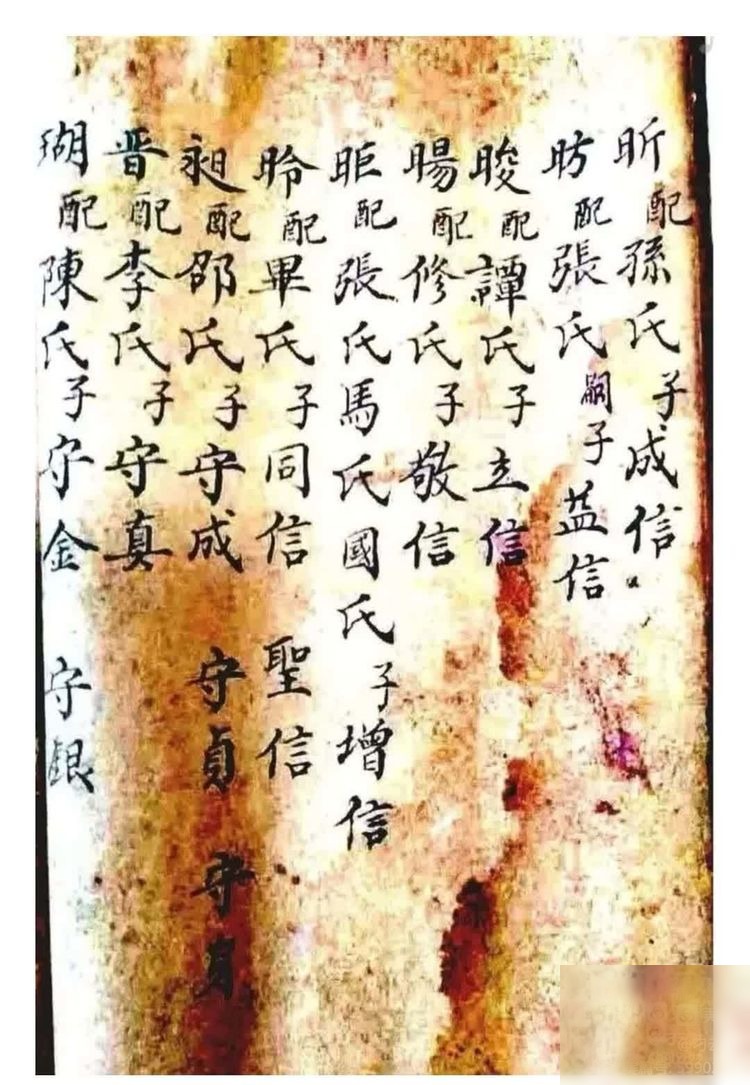 昕配孫氏子成信
昉配張氏嗣子益信
晙配譚氏子立信
暘配修氏子敬信
昛配張氏馬氏國氏子增信
昤配畢氏子同信 聖信
昶配邵氏子守成 守貞 守身
晋配李氏子守真
瑚配陳氏子守金 守銀